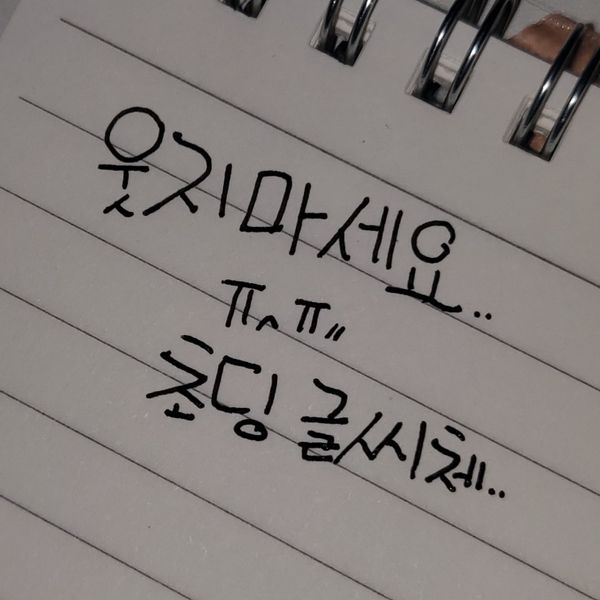 웃지마세요..
ㅠㅅㅠ〃
초딩 글씨체..